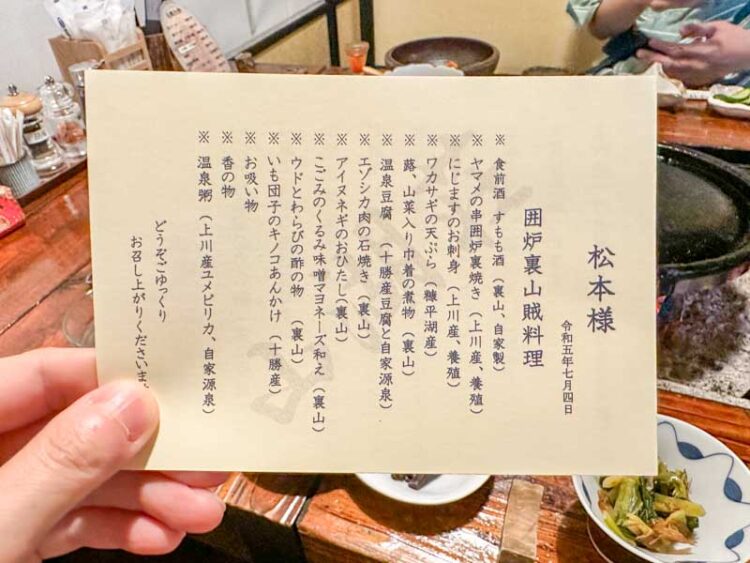 松本様
令和五年七月四日
囲炉裏山賊料理
※ 食前酒 すもも酒（裏山、自家製）
※ ヤマメの串囲炉裏焼き（上川産、養殖）
※ にじますのお刺身（上川産、養殖）
※ ワカサギの天ぷら（糠平湖産）
※ 蕗、山菜入り巾着の煮物（裏山）
※ 温泉豆腐（十勝産豆腐と自家源泉）
※ エゾシカ肉の石焼き（裏山）
※ アイヌネギのおひたし（裏山）
※ こごみのくるみ味噌マヨネーズ和え（裏山）
※ ウドとわらびの酢の物（裏山）
※ いも団子のキノコあんかけ（十勝産）
※ お吸い物
※ 香の物
※ 温泉粥（上川産ユメピリカ、自家源泉）
どうぞごゆっくり
お召し上がりくださいま